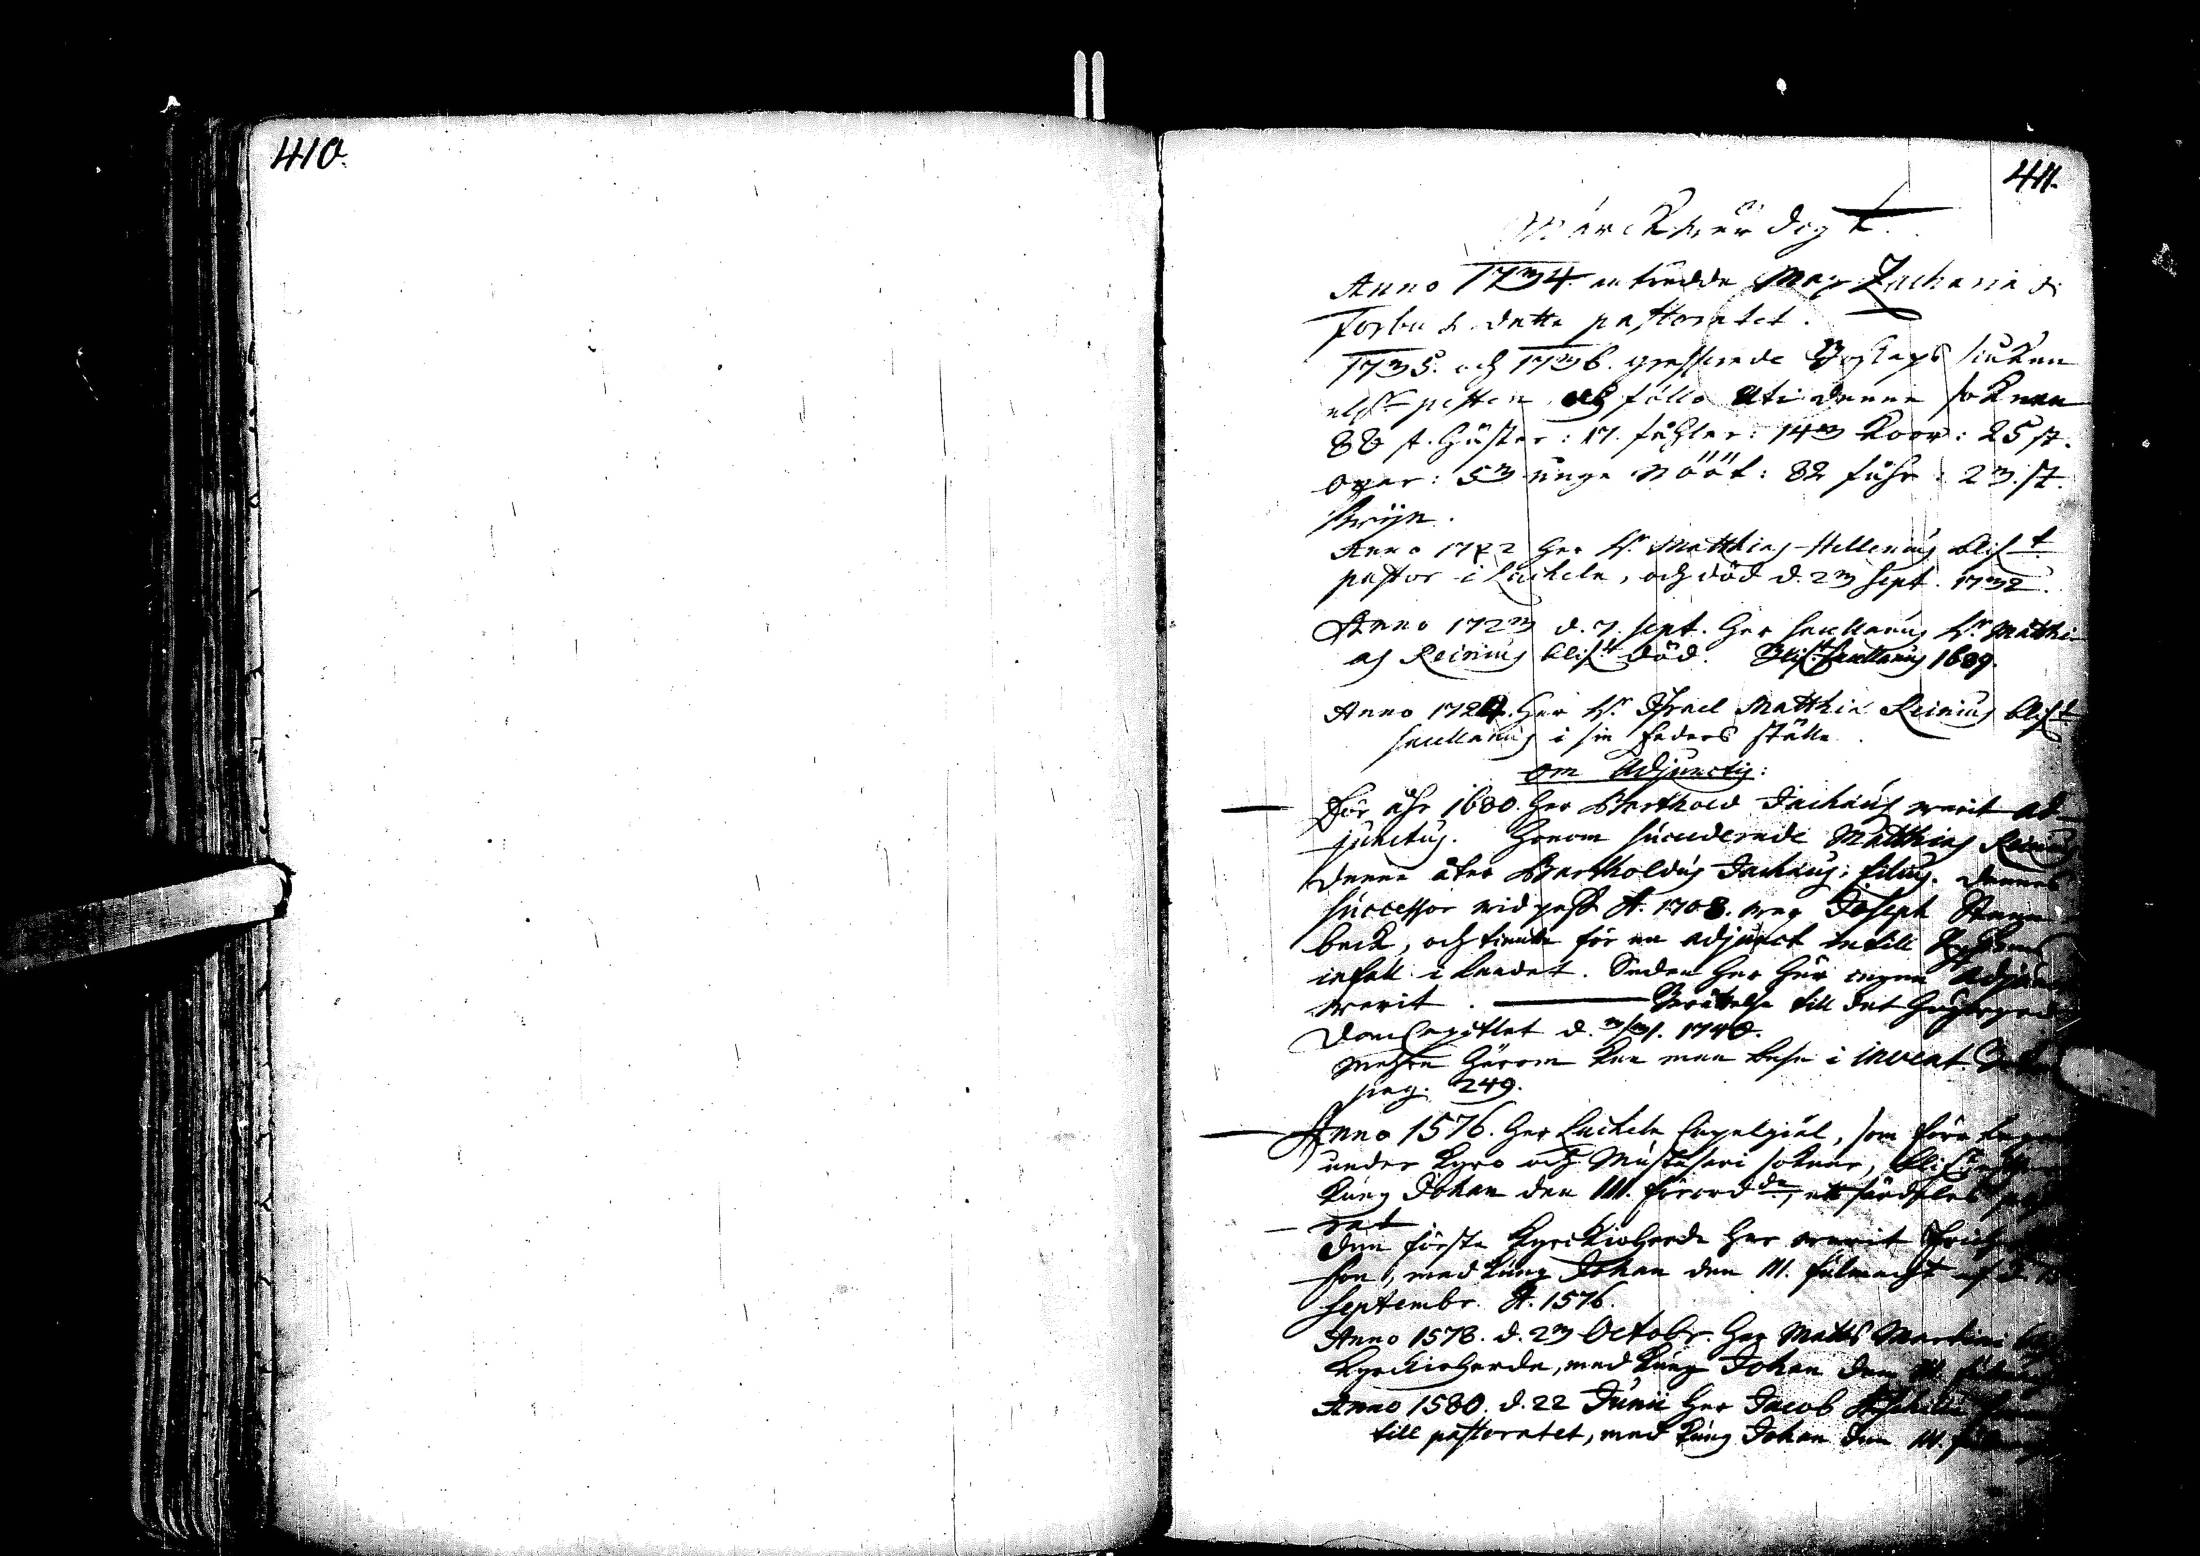 410.
411.
Märckwürdigt.
Anno 1734. antredde Mag. Zacharia d.
Forbu s. detta pastoratet.
1735. och 1736. grasserade Boskaps siukan
eller pesten och föllo uti denna soknen
88 st. hästar: 17. fåhlar: 143 koor: 25 st.
oxar: 53 unge nööt: 82 fåhr: 23. st.
swijn.
Anno 1722 har Hr. Matthias Hellenius blift
pastor i Lochela, och död d. 23 Sept. 1732.
Anno 1723 d. 7. Sept. har sacellanus Hr. Matthi-
as Reinius blifit död. Blef sacellanus 1689.
Anno 1724. har Hr. Israel Matthiæ Reinius blifit
sacellanus i sin faders ställe.
om Adjunctis:
För åhr 1680. har Barthold Jachæus warit ad-
junctus. Honom succederade Matthias Reinius
denna åter Bartholdus Jachæus: filius. dennes
successor wid pass A. 1708. war Joseph
beck, och tiente för en adjunct intill Ryssens
infall i landet. Sedan har här ingen Adjunct
warit. Berättelse till det
DomCapitlet d. 1740.
Mehra härom kan man läsa i invent.
pag. 249.
Anno 1576. har Lochela Capelgiäl, som förr
under Kyro och Mustasari soknar, blifit
Kung Johan den III. förord de, ett särdeles
rat
Den första Kyrckioherde har warit
son, med Kung Johan den III. fulmacht af d.
Septembr. A. 1576.
Anno 1578. d. 23 Octobr. har Matts Martini
Kyrckioherde, med Kung Johan den III.
Anno 1580. d. 22 Junii har Jacob
till pastoratet, med Kung Johan den III.